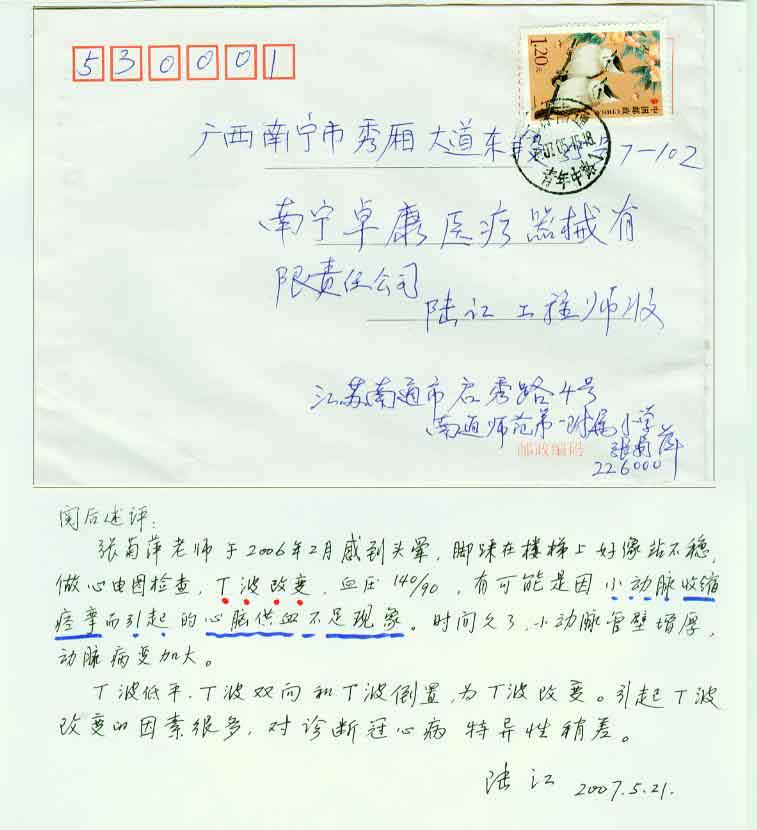 530001
1.20元
中国邮政 CHINA
广西南宁市秀厢大道东段 7-102
南宁卓康医疗器械有
限责任公司
陆江工程师收
江苏南通市启秀路4号
南通师范第一附属小学
张菊萍
邮政编码
226000
阅后述评:
张菊萍老师于2006年2月感到头晕,脚踩在楼梯上好像站不稳,
做心电图检查,T波改变,血压140/90,有可能是因小动脉收缩
痉挛而引起的心脑供血不足现象。时间久了,小动脉管壁增厚,
动脉病变加大。
T波低平、T波双向和T波倒置,为T波改变。引起T波
改变的因素很多,对诊断冠心病特异性稍差。
陆江 2007.5.21.